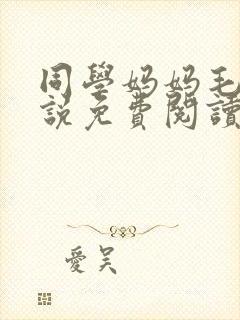 同學媽媽毛
說免費閱讀
愛吴